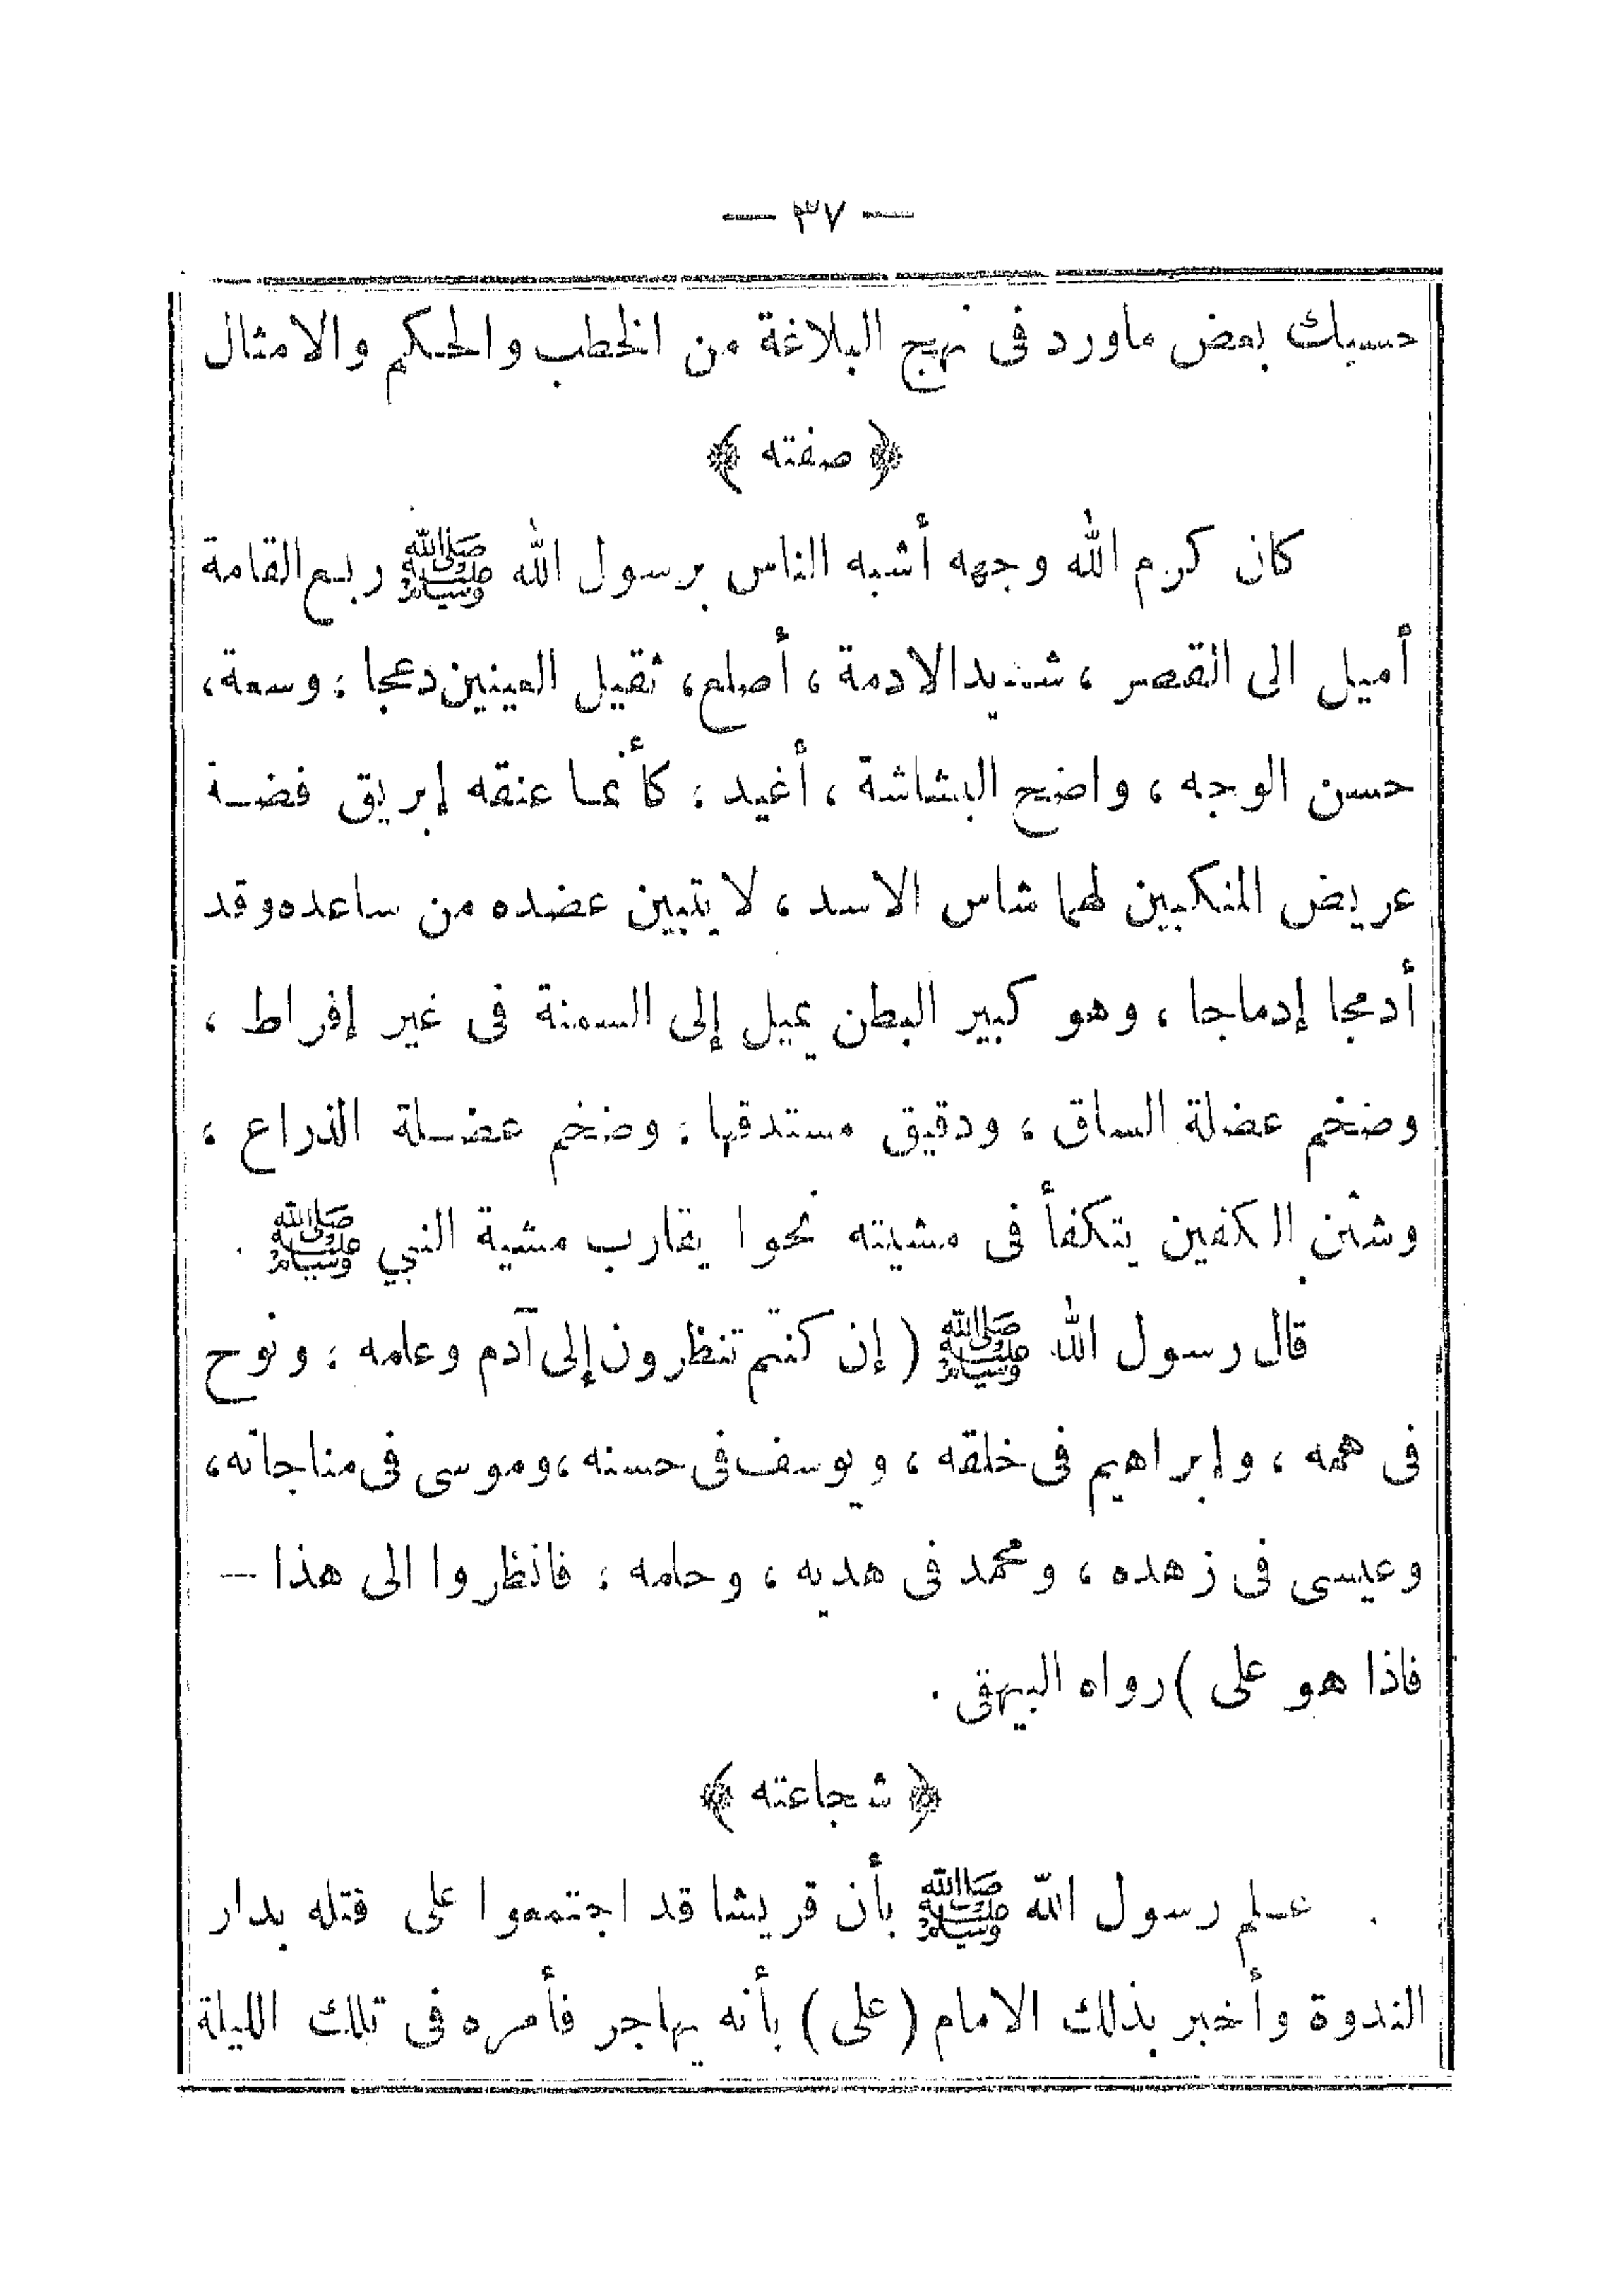 — ٣٧ —
حسبك بعض ماورد فى نهج البلاغة من الخطب والحكم والامثال
﴿ صفته ﴾
كان كرم الله وجهه أشبه الناس برسول الله ﷺ ربع القامة
أميل الى القصر ، شديد الادمة ، أصلع ، ثقيل العينين دعجا ، وسعة ،
حسن الوجه ، واضح البشاشة ، أغيد ، كأنما عنقه إبريق فضة
عريض المنكبين لهما شاس الاسد ، لا يتبين عضده من ساعده وقد
أدمجا إدماجا ، وهو كبير البطن يميل إلى السمنة فى غير إفراط ،
وضخم عضلة الساق ، ودقيق مستدقها ، وضخم عضلة الذراع ،
وشثن الكفين يتكفأ فى مشيته نحوا يقارب مشية النبي ﷺ .
قال رسول الله ﷺ ( إن كنتم تنظرون إلى آدم وعلمه ، ونوح
فى همه ، وإبراهيم فى خلقه ، ويوسف فى حسنه ، وموسى فى مناجاته ،
وعيسى فى زهده ، ومحمد فى هديه ، وحلمه ، فانظروا الى هذا —
فاذا هو على ) رواه البيهقى .
﴿ شجاعته ﴾
علم رسول الله ﷺ بأن قريشا قد اجتمعوا على قتله بدار
الندوة وأخبر بذلك الامام (على) بأنه يهاجر فأمره فى تلك الليلة